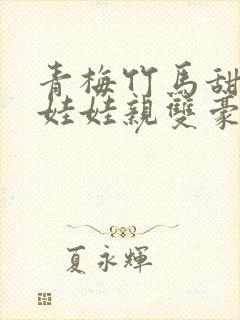 青梅竹馬甜
娃娃親雙豪
夏永輝